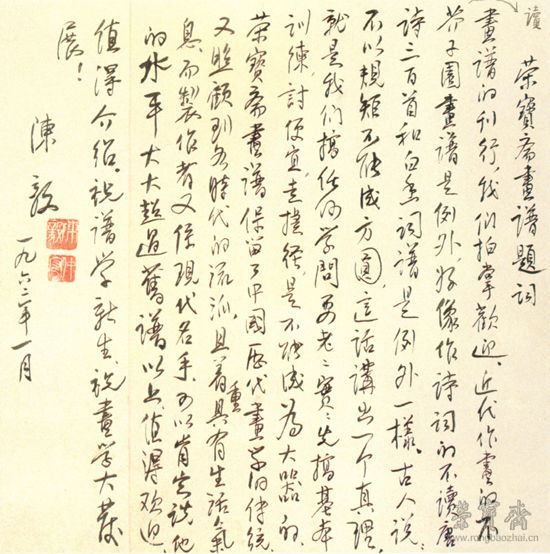 讀
荣寳斋畫谱题词
畫谱的刊行,我们拍掌歡迎。近代作畫的不
芥子園畫谱是例外,好像作诗词的不讀唐
诗三百首和白香词谱是例外一樣。古人说,
不以規矩不能成方圆,这话講出一个真理,
就是我们搞任何学問要老老實實先搞基本
训練,討便宜走捷径是不能成为大器的。
荣寳斋畫谱保留了中國歷代畫家的传统
又照顾到各時代的流派,且着重具有生活氣
息,而製作者又係現代名手,可以肯定说他
的水平大大超過舊谱。以上值得欢迎,
值得介绍。祝谱学新生,祝畫学大发
展!
陳毅
一九六二年一月
榮寶齋
www.rongbaozhai.cn